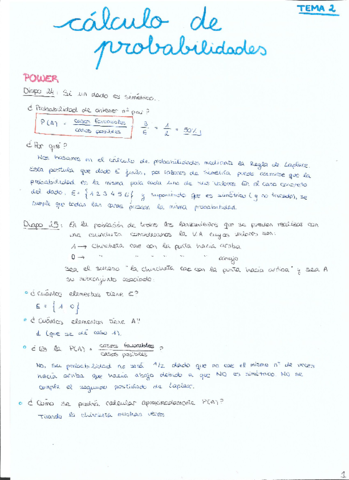 TEMA 2
cálculo de
probabilidades
POWER
Diapo 24: Si un dado es simétrico.
¿Probabilidad de obtener nº par?
P(A) = casos favorables / casos posibles
3/6 = 1/2 = 50%
¿Por qué?
Nos basamos en el cálculo de probabilidades mediante la Regla de Laplace.
Esta postula que dado E finito, por razones de simetría puede admitirse que la
probabilidad es la misma para cada uno de sus valores. En el caso concreto
del dado, E = {1 2 3 4 5 6} y suponiendo que es simétrico (y no trucado), se
cumple que todas las caras poseen la misma probabilidad.
Diapo 25: En la población de todos los lanzamientos que se pueden realizar con
una chincheta consideramos la V.A cuyos valores son:
1 → Chincheta cae con la punta hacia arriba
0 → " " " " " abajo
Sea el suceso "la chincheta cae con la punta hacia arriba" y sea A
su subconjunto asociado.
¿Cuántos elementos tiene E?
E = {1 0}
¿Cuántos elementos tiene A?
1 (que es el caso 1).
¿Es la P(A) = casos favorables / casos posibles ?
No, su probabilidad no será 1/2 dado que no cae el mismo nº de veces
hacia arriba que hacia abajo debido a que NO es simétrico NO se
cumple el segundo postulado de Laplace.
¿Cómo se podría calcular aproximadamente P(A)?
Tirando la chincheta muchas veces
1